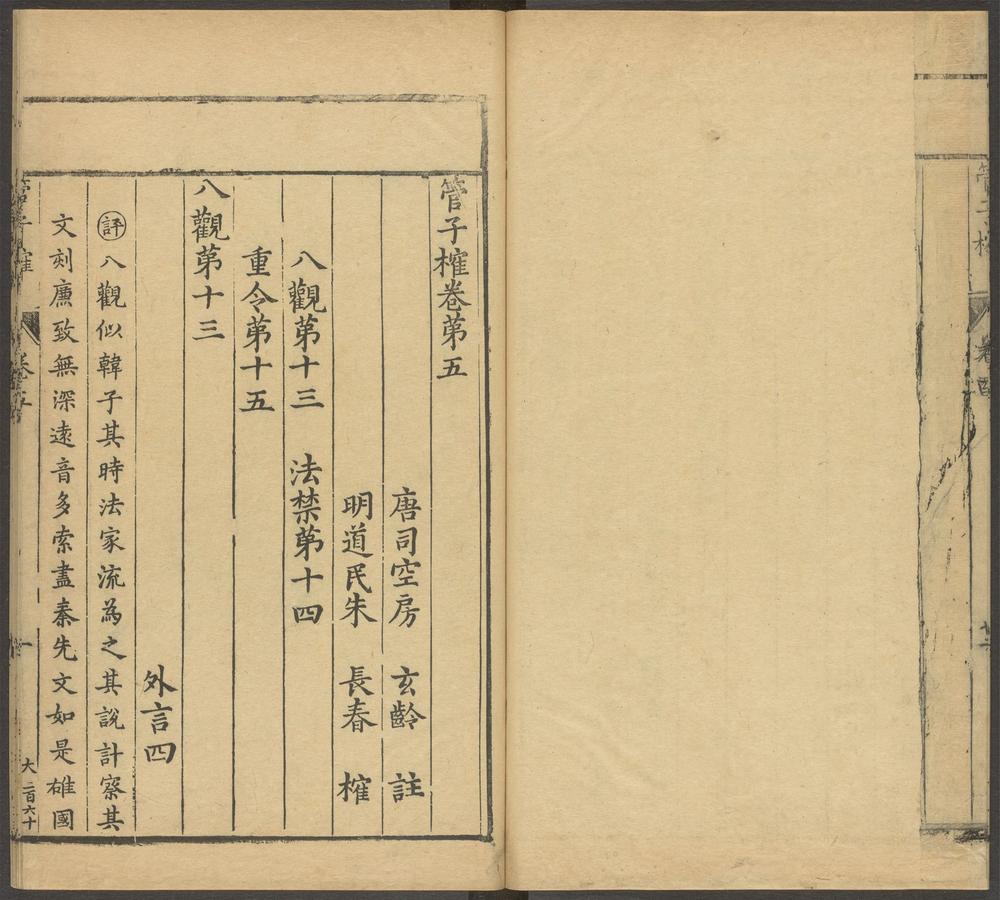 管子榷卷第五
唐司空房 玄齡 註
明道民朱 長春 榷
八觀第十三 法禁第十四
重令第十五
八觀第十三
外言四
評 八觀似韓子其時法家流為之其說計察其
文刻廉致無深遠音多索盡秦先文如是雄國
卷五
一
大二百六十